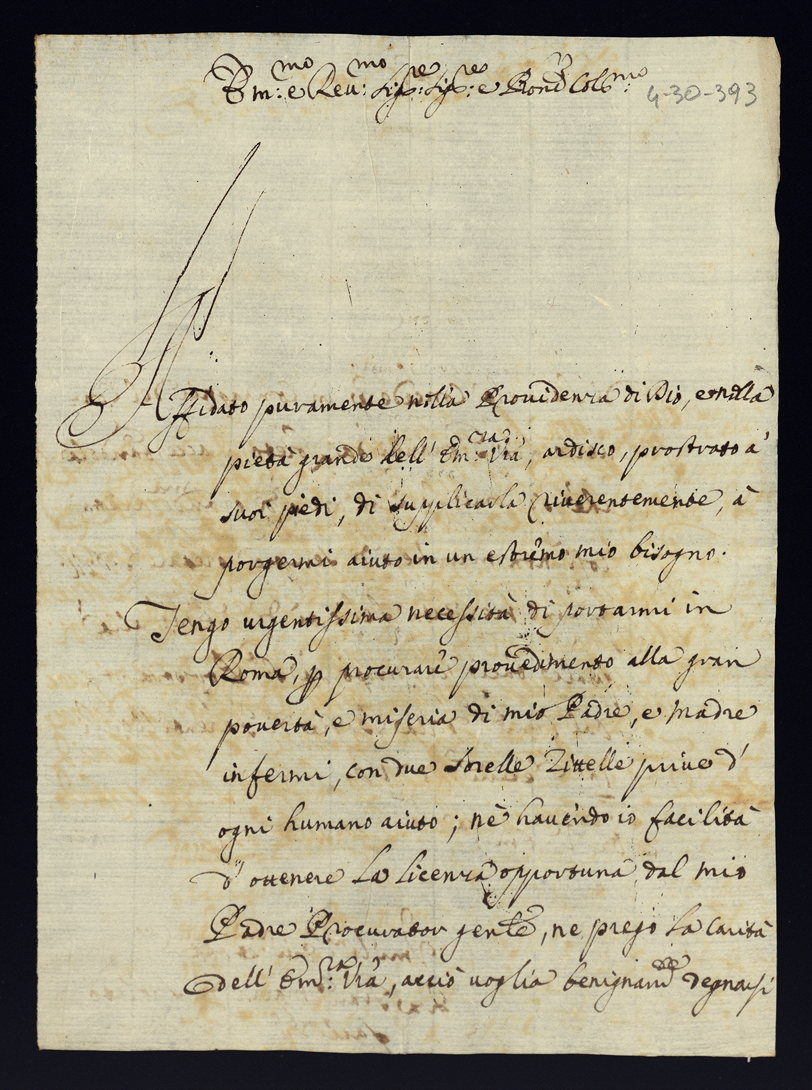 Em:mo e Reu:mo Sig:re Sig:re e Pron Col:mo
4-30-393
Affidato puramente nella Prouidenza di Dio, e nella
pietà grande dell' Em:za Vra, ardisco, prostrato a'
suoi piedi, di supplicarla riuerentemente, à
porgermi aiuto in un estremo mio bisogno.
Tengo urgentissima necessità di portarmi in
Roma, p procurare prouedimento alla gran
pouertà, e miseria di mio Padre, e Madre
infermi, con due Sorelle Zittelle priue d'
ogni humano aiuto; nè hauendo io facilità
d' ottenere la licenza opportuna dal mio
Padre Procurator genle, ne prego la Carità
dell' Em:za Vra, acciò uoglia benignam degnarsi